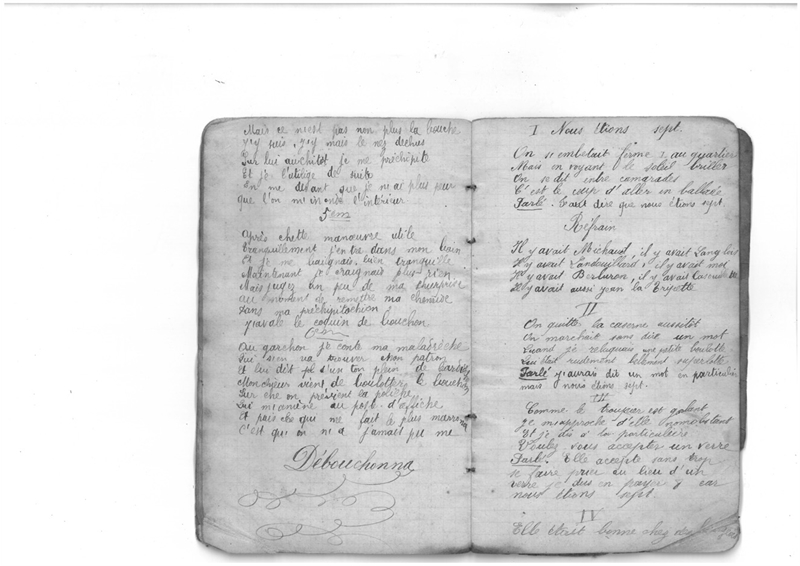 Mais ce n'est pas non plus la bouche
J'y suis, j'y mais le nez dechus
Sur lui auchitôt je me préchipite
Et je l'utilige de suite
En me disant que je n'ai plus peur
que l'on m'inonde l'intérieur
5em
Après chette manœuvre utile
tranquillement j'entre dans mon bain
Et je me baignais bien tranquille
Maintenant je craignais plus rien
Mais jugez un peu de ma churprise
au moment de remettre ma chemise
Dans ma préchipitachion
j'avale le coquin de bouchon
6em
Au garchon je conte ma maladreche
Qui s'en va trouver chon patron
Et lui dit
Monchieur vient de boulotter le bouchon
Sur che on prévient la poliche
Qui m'amène au poste d'offiche
Et puis che qui me fait le plus marron
C'est qu'on n'a jamais pu me
Débouchonna
I Nous étions sept.
On s'embêtait ferme au quartier
Mais en voyant le soleil briller
On se dit entre camarades
C'est le coup d'aller en ballade
Parlé. faut dire que nous étions sept.
Réfrain
Il y avait Michaust, il y avait Langlois
Il y avait il y avait moi
Il y avait Berluron, il y avait
Il y avait aussi
II
On quitte la caserne aussitôt
On marchait sans dire un mot
Quand je reluquai une petite boulotte
Qui était rudement bellement
Parlé j'y aurais dit un mot en particulier
mais nous étions sept.
III
Comme le troupier est galant
Je m'approche d'elle
Et je dis à la particulière
Voulez vous accepter un verre
Parlé. Elle accepte sans trop
se faire prier au lieu d'un
verre je dus en payer 7 car
nous étions sept
IV
Elle était bonne chez